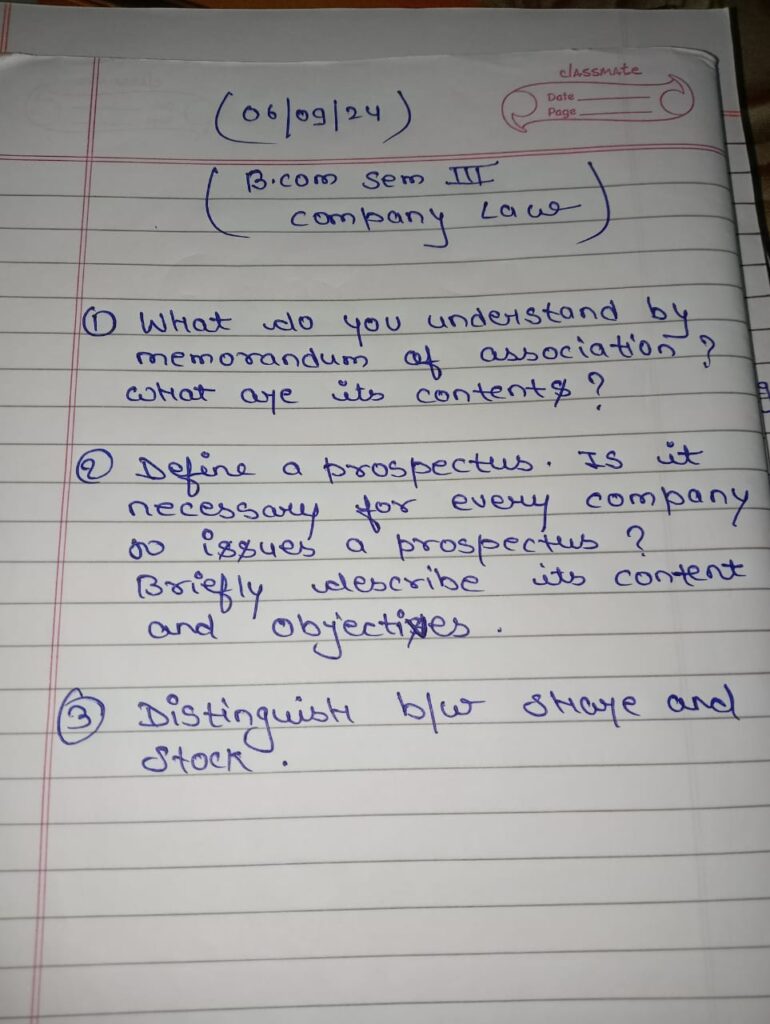 classmate
Date
Page
(06/09/24)
(B.com Sem III
company Law)
① What do you understand by
memorandum of association ?
What are its contents ?
② Define a prospectus. Is it
necessary for every company
to issues a prospectus ?
Briefly describe its content
and objectives .
③ Distinguish b/w share and
Stock .